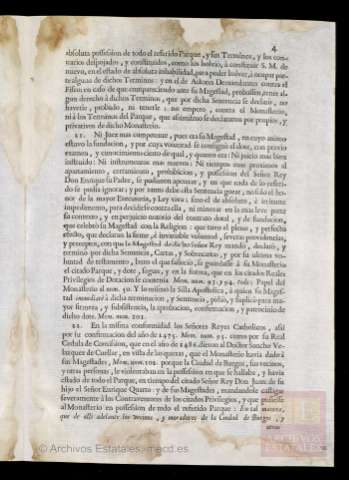 4
absoluta possession de todo el referido Parque, y sus Terminos, y los contrarios despojados, y constituidos, como los bolviò, à constituir S. M. de
nuevo, en el estado de absoluta inhabilidad, para poder bolver, à ocupar parte alguna de dichos Terminos: y en el de Actores Demandantes contra el
Fisco en caso de que compareciendo ante su Magestad, probassen tener algun derecho à dichos Terminos, que por dicha Sentencia se declarò, no
haverle probado, ni tenerle: no empero, contra el Monasterio,
ni à los Terminos del Parque, que assimismo se declararon por propios, y
privativos de dicho Monasterio.
21. Ni Juez mas competente, pues era su Magestad, en cuyo animo
estavo la fundacion, y por cuya voluntad se consiguiò el dote, con previo
examen, y conocimiento cierto de qual, y quanto era: Ni juicio mas bien
instruido: Ni instrumentos mas nuevos: Ni tiempos mas proximos al
apartamiento, cerramiento, prohibicion, y possession del Señor Rey
Don Enrique su Padre, se pudieron apetecer, y en que nada de lo referido se pudo ignorar; y por tanto debe esta Sentencia gozar, no solo el honor de la mayor Executoria, y Ley viva: sino el de absoluto, è irritante
impedimento, para decidirse contra ella, ni minorar en lo mas leve parte
su contexto, y en perjuicio notorio del contrato dotal, y de fundacion,
que celebrò su Magestad con la Religion: que tuvo el pleno, y perfecto
efecto, que declaran la firme, è invariable voluntad, severas providencias,
y preceptos, con que la Magestad de dicho Señor Rey mandò, declarò, y
terminò por dicha Sentencia, Cartas, y Sobrecartas; y por su ultima voluntad de testamento, luego el que falleciò, se guardasse à su Monasterio
el citado Parque, y dote, segun, y en la forma, que en los citados Reales
Privilegios de Dotacion se contenia. Mem. num. 93. 794. todo: Papel del
Monasterio al num. 50. Y lo mismo la Silla Apostolica, à quien su Magestad inmediatè à dicha terminacion, y Sentencia, pidiò, y suplicò para mayor firmeza, y subsistencia, la aprobacion, confirmacion, y patrocinio de
dicho dote. Mem. num. 202.
22. En la misma conformidad los Señores Reyes Catholicos, assi
por su confirmacion del año de 1475. Mem. num. 95. como por su Real
Cedula de Comission, que en el año de 1486. dieron al Doctor Sancho Velazquez de Cuellar, en vista de las quexas, que el Monasterio havia dado à
sus Magestades, Mem. num. 102. porque la Ciudad de Burgos, sus vecinos,
y otras personas, le violentaban en la possession en que se hallaba, y havia
estado de todo el Parque, en tiempo del citado Señor Rey Don Juan, de su
hijo el Señor Enrique Quarto: y de sus Magestades, mandandole castigue
severamente à los Contraventores de los citados Privilegios, y que pusiesse
al Monasterio en possession de todo el referido Parque: En tal manera,
que de alli adelante los Vecinos, y moradores de la Ciudad de Burgos, y
otros
© Archivos Estatales, mecd.es
ARCHIVOS
ESTATALES